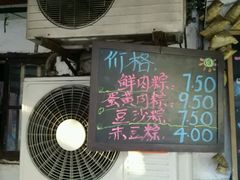 价格
鲜肉粽: 7.50
蛋黄肉粽: 9.50
豆沙粽: 7.50
赤豆粽 4.00